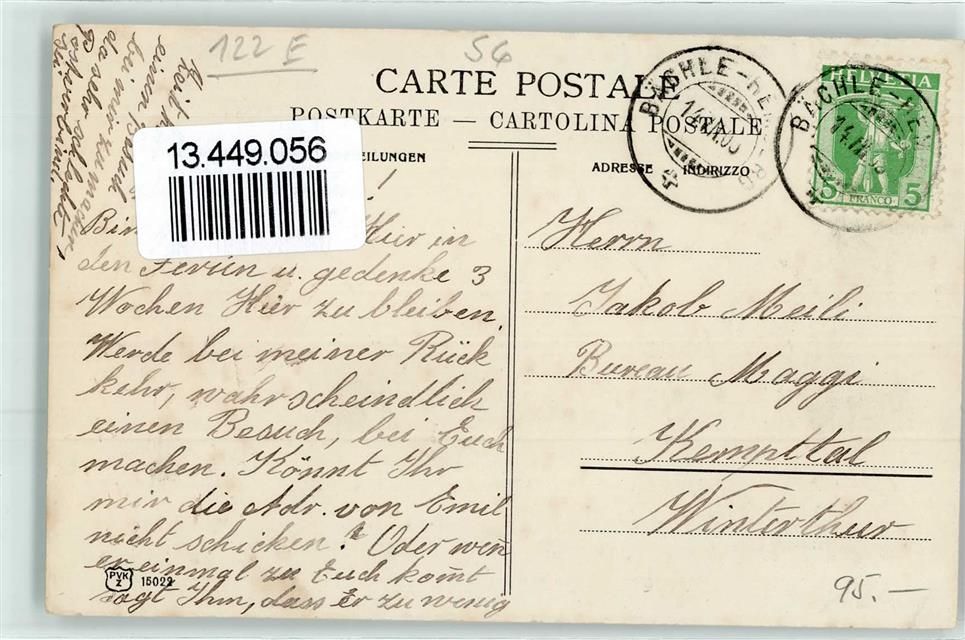 122 E
56
CARTE POSTALE
POSTKARTE — CARTOLINA POSTALE
13.449.056
EILUNGEN
ADRESSE INDIRIZZO
BÄCHLE-HEMBERG
14.VII.09
BÄCHLE-HEM
14.VII
HELVETIA
5 FRANCO 5
!
Hier in
den Ferien u. gedenke 3
Wochen Hier zu bleiben.
Werde bei meiner Rück
kehr, wahrscheindlich
einen Besuch, bei Euch
machen. Könnt Ihr
mir die Adr. von Emil
nicht schicken? Oder wen̄
er einmal zu Euch kom̄t
sagt Ihm, dass Er zu wenig
einen Besuch
bei mir zu machen
da sehr schlechte
Herrn
Jakob Meili
Bureau Maggi
Kempttal
Winterthur
PVK
Z
15022
95.—